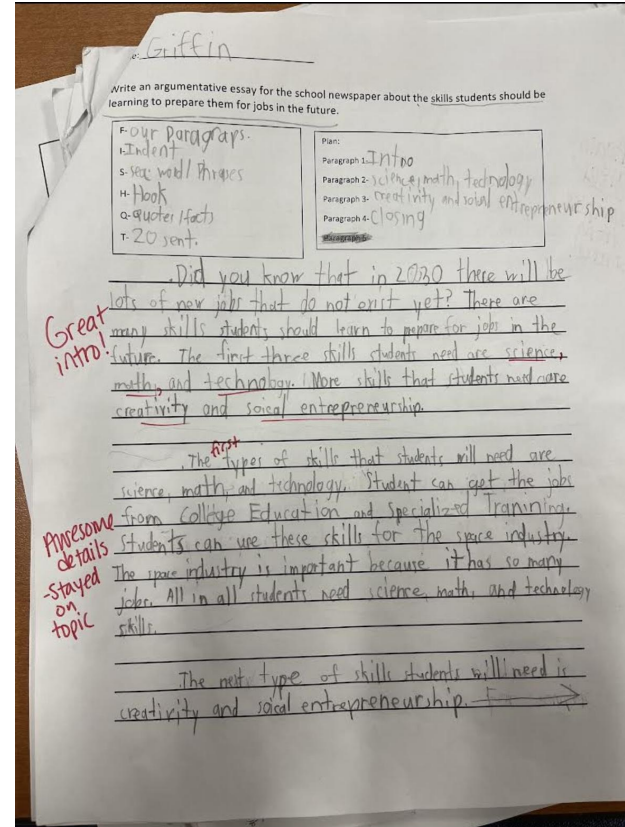 e: Griffin
Write an argumentative essay for the school newspaper about the skills students should be
learning to prepare them for jobs in the future.
F-our Paragraps.
I-Indent
S- seq. word/ Phrases
H-Hook
Q-quotes/facts
T-20 sent.
Plan:
Paragraph 1-Intro
Paragraph 2-science, math, technology
Paragraph 3- creativity and soical entrepreneurship
Paragraph 4-Closing
Paragraph 5-
Did you know that in 2030 there will be
lots of new jobs that do not exist yet? There are
many skills students should learn to prepare for jobs in the
future. The first three skills students need are science,
math, and technology. More skills that students need are
creativity and soical entrepreneurship.
Great
intro!
The first types of skills that students will need are
science, math, and technology. Student can get the jobs
from Collage Education and Specialized Tranining.
Students can use these skills for the space industry.
The space industry is important because it has so many
jobs. All in all students need science, math, and technology
skills.
Awesome
details
-Stayed
on
topic
The next type of skills students will need is
creativity and soical entrepreneurship.